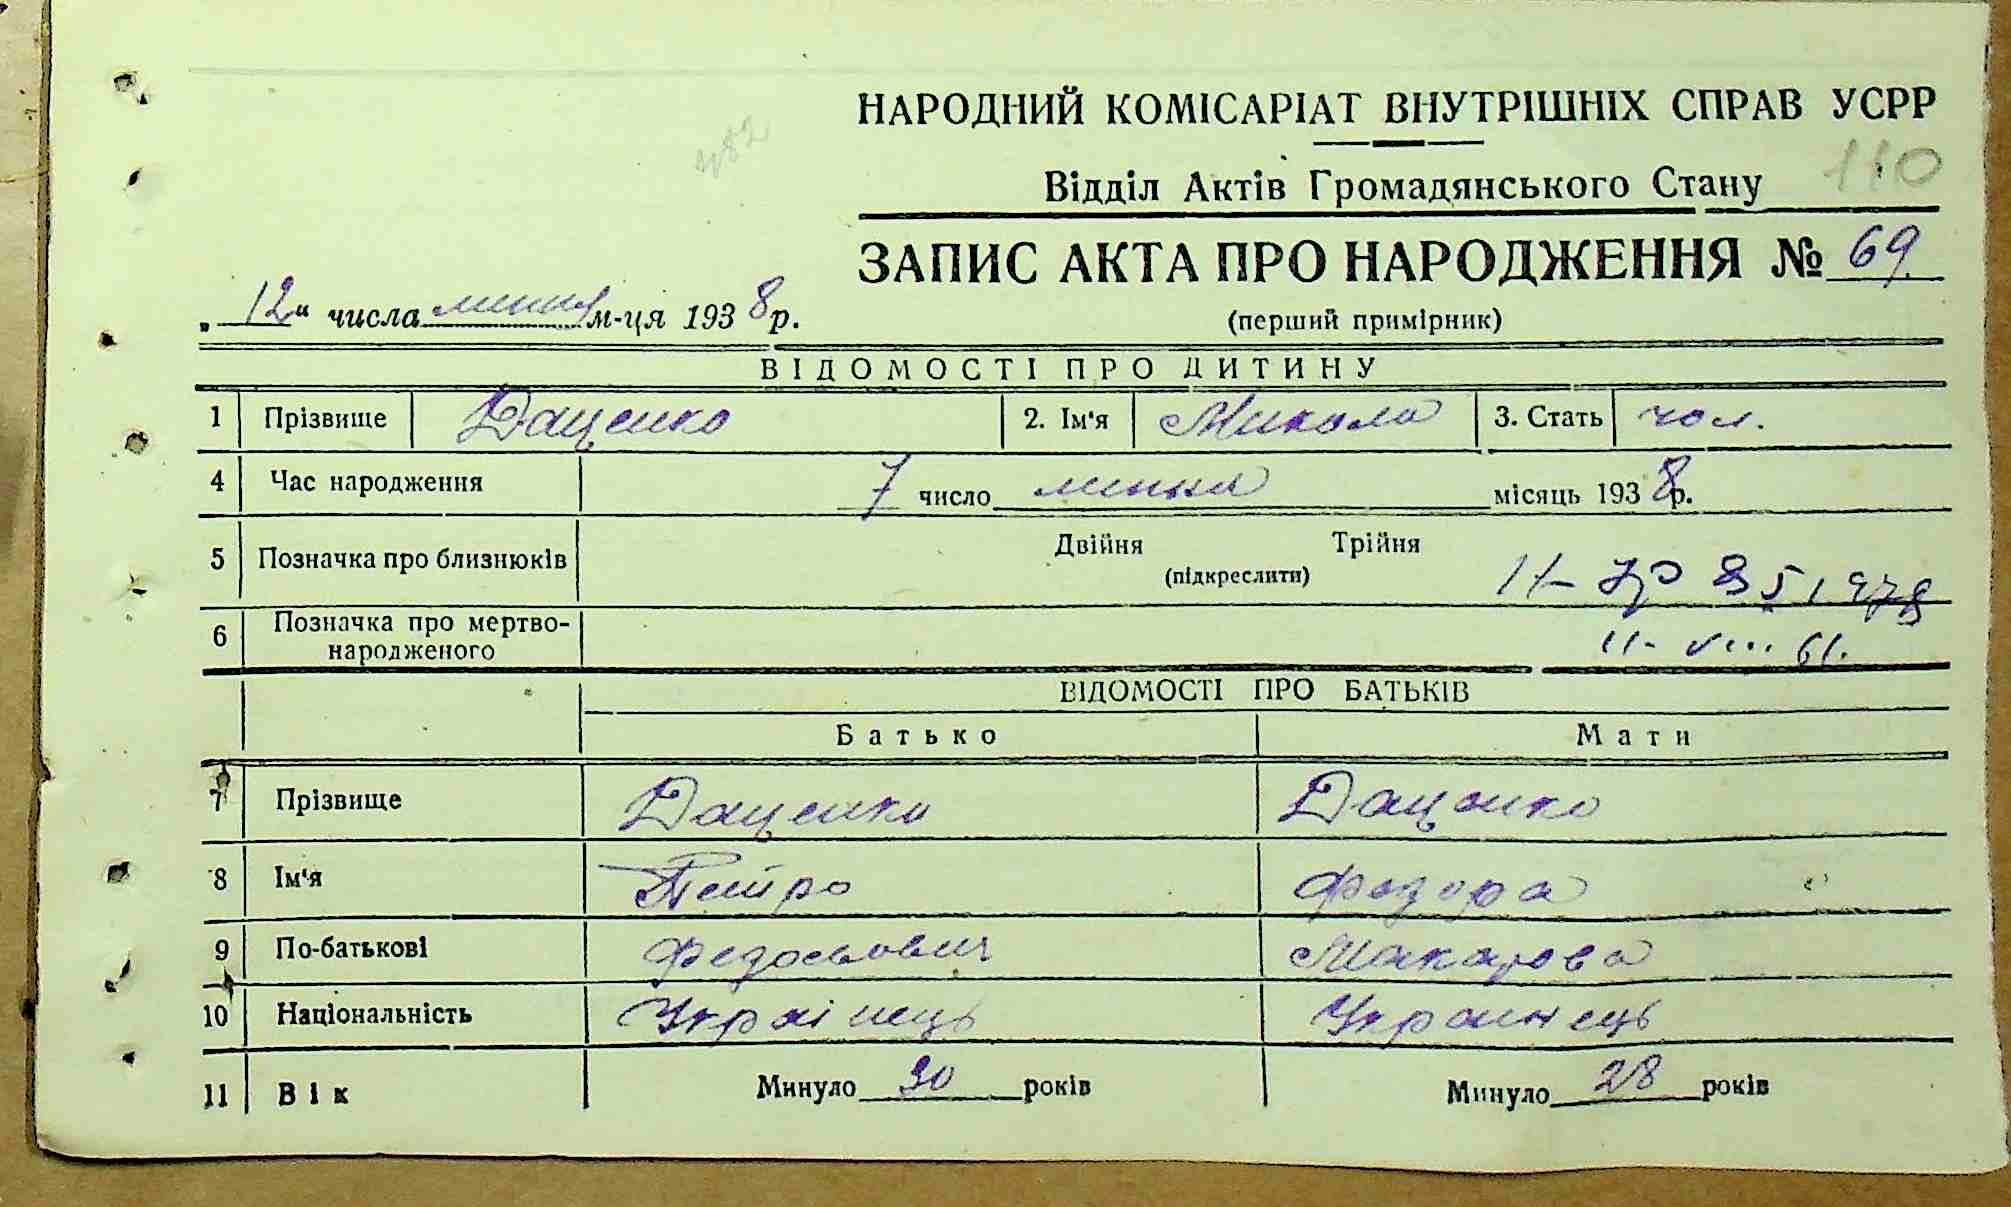 НАРОДНИЙ КОМІСАРІАТ ВНУТРІШНІХ СПРАВ УСРР
482
110
Відділ Актів Громадянського Стану
ЗАПИС АКТА ПРО НАРОДЖЕННЯ № 69.
„12“ числа липня м-ця 1938 р.
(перший примірник)
ВІДОМОСТІ ПРО ДИТИНУ
1 Прізвище Даценко 2. Ім'я Микола 3. Стать чол.
4 Час народження 7 число липня місяць 1938 р.
5 Позначка про близнюків Двійня Трійня
(підкреслити)
6 Позначка про мертво-
народженого
11- VIII 61.
ВІДОМОСТІ ПРО БАТЬКІВ
Батько Мати
7 Прізвище Даценко Даценко
8 Ім'я Петро Федора
9 По-батькові Федосьович Макарова
10 Національність Украінець Украинець
11 Вік Минуло 30 років Минуло 28 років